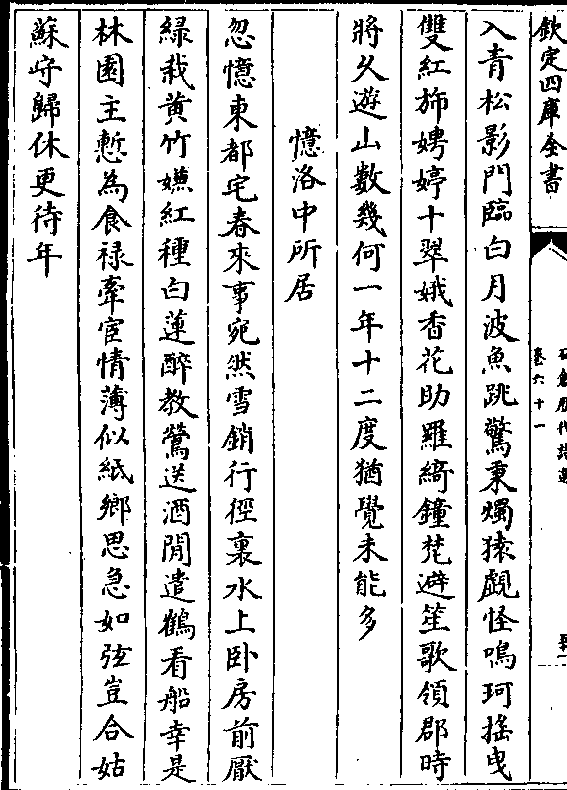 欽定四庫全書
卷六十一
入青松影門臨白月波魚跳驚秉燭猿覷怪鳴珂搖曳
雙紅斾娉婷十翠娥香花助羅綺鐘梵避笙歌領郡時
將久遊山數幾何一年十二度猶覺未能多
憶洛中所居
忽憶東都宅春來事宛然雪銷行徑裏水上卧房前厭
綠栽黄竹嫌紅種白蓮醉教鶯送酒閒遣鶴看船幸是
林園主慙為食禄牽宦情薄似紙鄉思急如弦豈合姑
蘇守歸休更待年